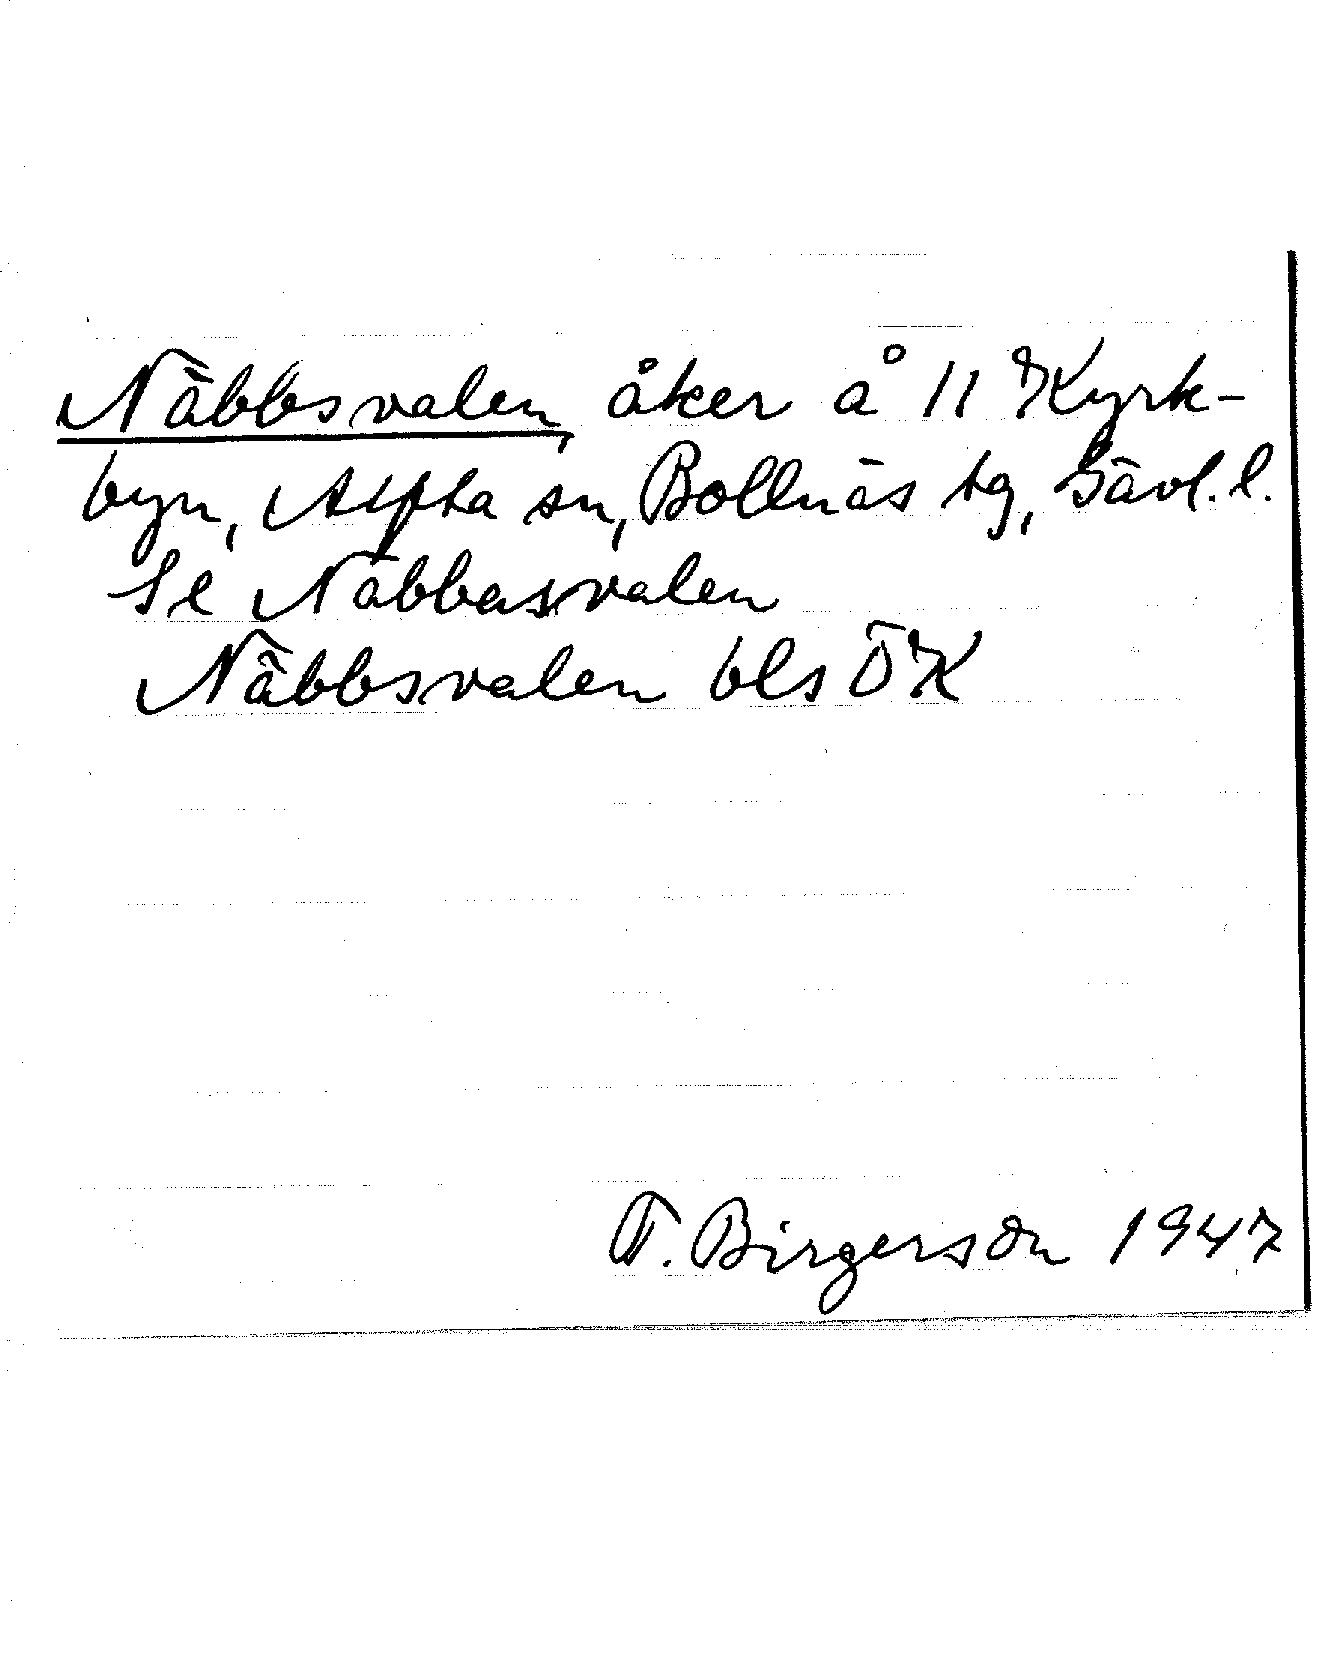 Näbbsvalen, åker å 11 Kyrk-
byn, Alfta sn, Bollnäs tg, Gävl. l.
Se Näbbasvalen
Näbbsvalen bls ÖK
F. Birgerson 1947